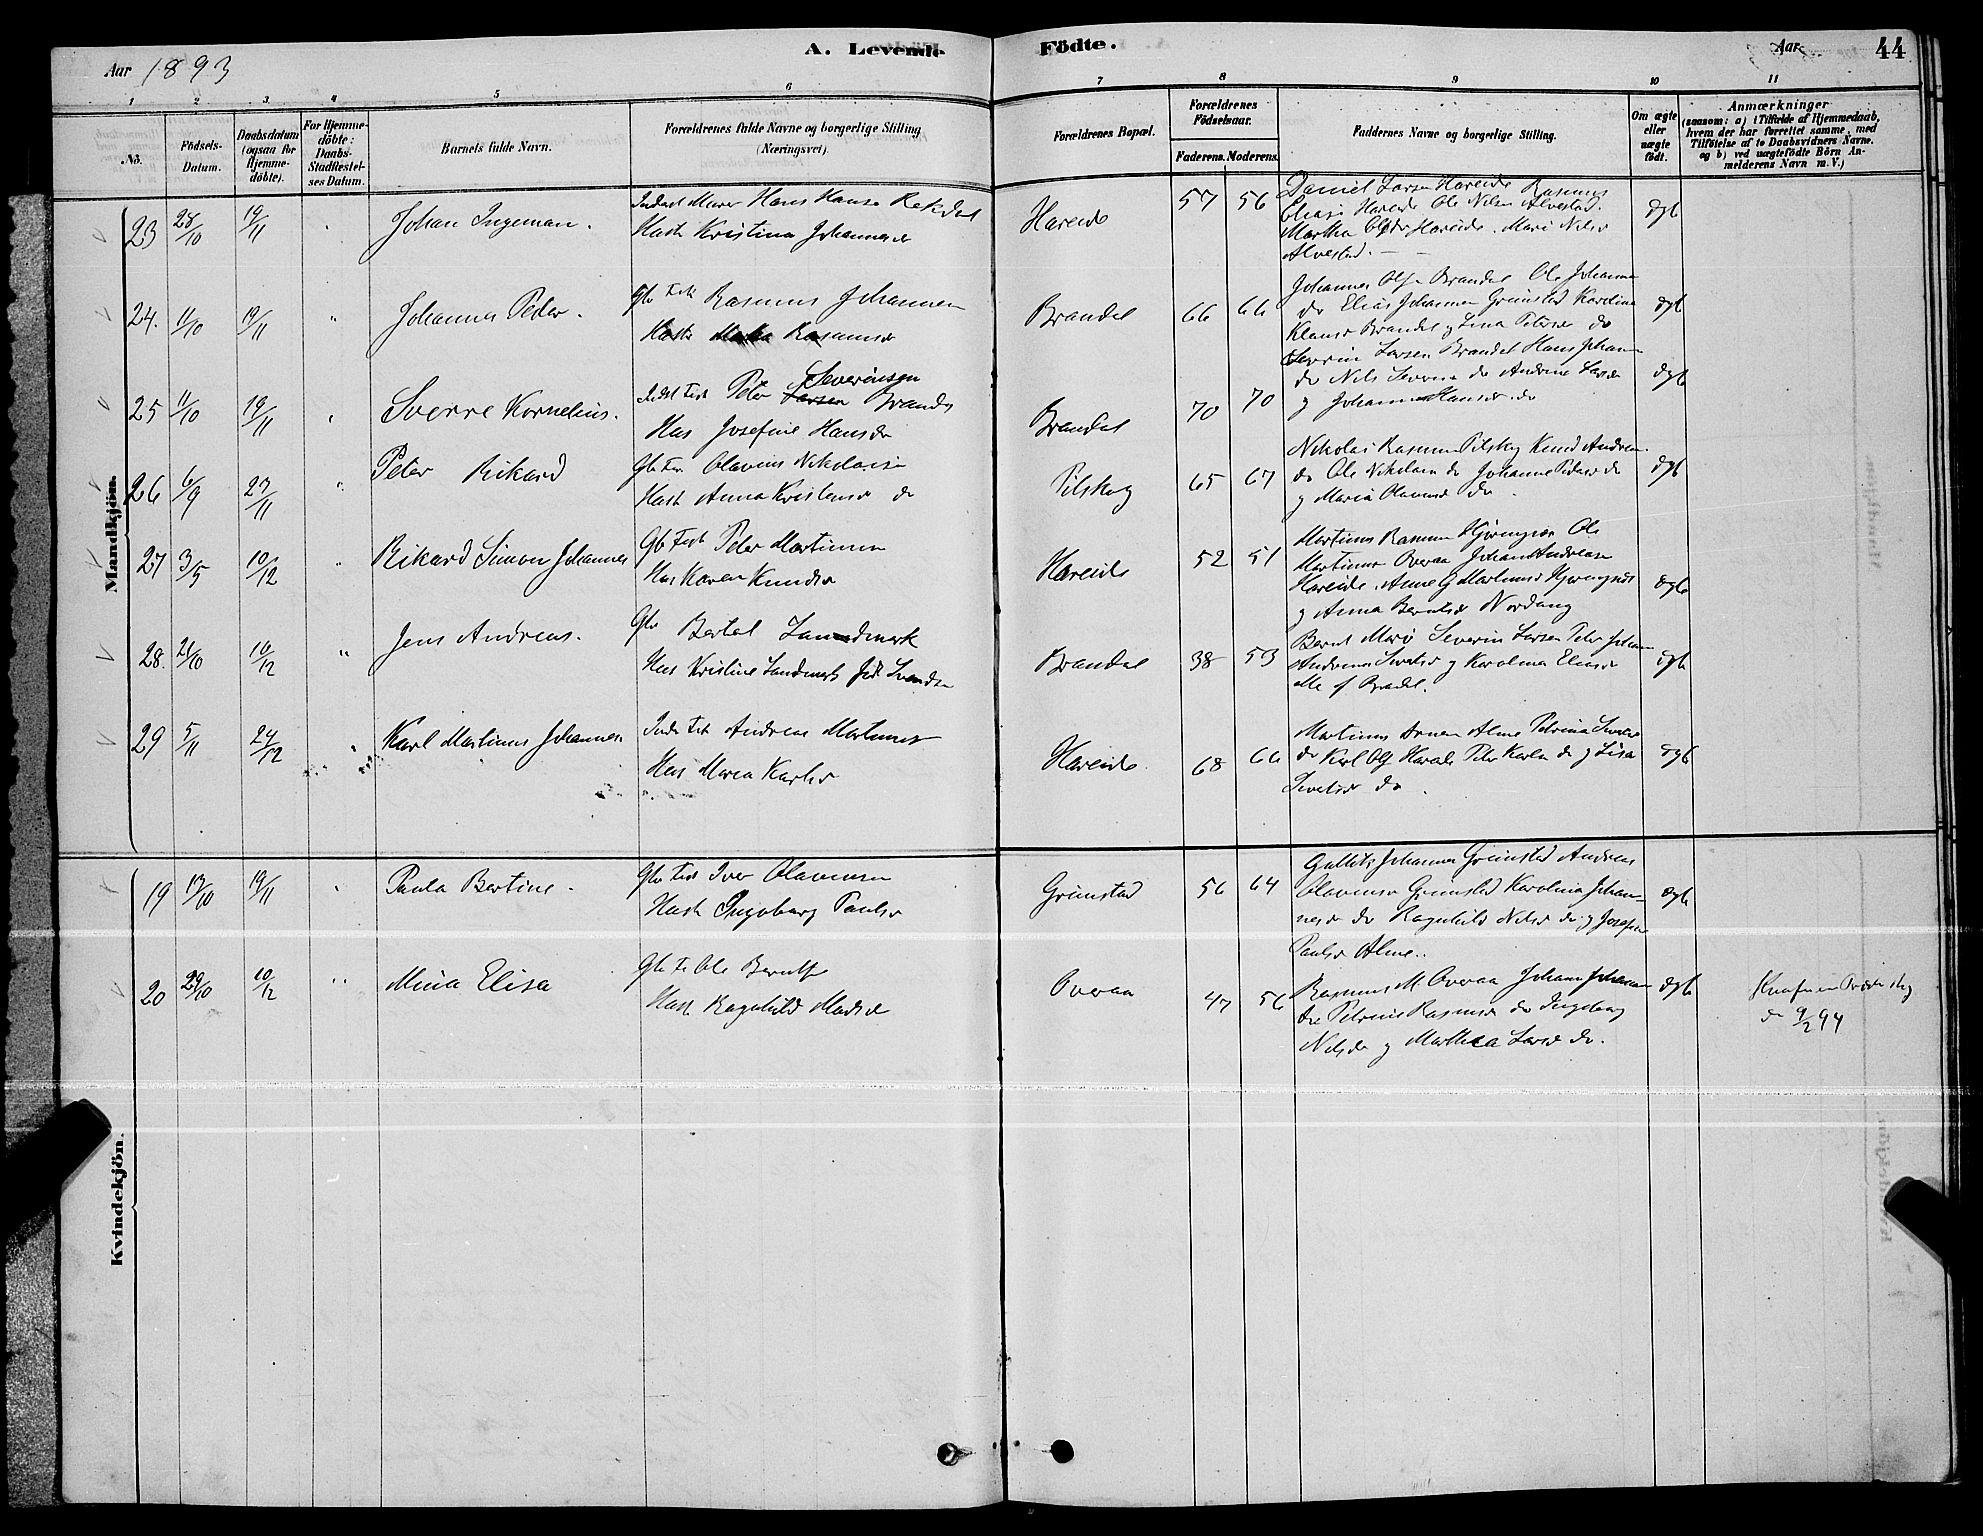 A. Levende Födte.
Aar 1893
Aar
44
1 2 3 4 5 6 7 8 9 10 11
No.
Födsels-Datum.
Daabsdatum (ogsaa for Hjemmedöbte).
For Hjemmedöbte: Daabs-Stadfæstelses Datum.
Barnets fulde Navn.
Forældrenes fulde Navne og borgerlige Stilling (Næringsvei).
Forældrenes Bopæl.
Forældrenes Födselsaar.
Faderens. Moderens.
Faddernes Navne og borgerlige Stilling.
Om ægte eller uægte födt.
Anmærkninger
(saasom: a) i Tilfælde af Hjemmedaab, hvem der har forrettet samme, med Tilföielse af to Daabsvidners Navne. og b) ved uægtefödte Börn Anmelderens Navn m. V.)
Mandkjön.
23 28/10 19/11 " Johan Ingeman.
Hans Hansen
Hust Kristina Johannesd
Hareide 57 56
Daniel Larsen Hareide Rasmus
Hareide Ole Nilsen Alvestad.
Martha Hareide. Mari Nilsd
Alvestad.
ægt
24. 11/10 19/11 " Johannes Peder.
Gbr Fisk Rasmus Johannesen
Hustr Rasmusd
Brandal 66 66
Johannes Olsen Brandal Ole Johannes
do Elias Johannesen Grimstad Karoline
Klausd Brandal og Lina Petersd do
ægt
25 11/10 19/11 " Sverre Kornelius.
Inderst Fisk Peter Larsen Severinsen Brandal
Hus Josefine Hansd
Brandal 70 70
Severin Larsen Brandal Hans Johan
do Nils Severins do Andrine Larsd do
og Johanne Hansd. do
ægt
26 6/9 27/11 " Peter Rikard
Gbr Fisk Olavius Nikolaisen
Hust Anna Kristensd do
Pilskog 65 67
Nikolai Rasmus Pilskog Knud Andreas
do Ole Nikolaisen do Johanne Pedersd do
og Maria Olavusd do.
ægt
27 3/5 10/12 " Rikard Simon Johannes
Gbr Fisk Peter Martinusen
Hus Karen Knudsd
Hareide 52 51
Martinus Rasmusen Hjørungnes Ole
Martinus Overaa Johan Andreasen
Hareide. Anne G Martinusd Hjørungnes
og Anna Berntsd Nordang
ægte
28. 21/10 10/12 " Jens Andreas.
Gbr Bertel Landmark
Hus Kristine Landmark født Svendsen
Brandal 38 53
Bernt Severin Larsen Peter Johan
Andreas og Karolina Eliasd
alle af Brandal.
ægt
29 5/11 24/12 " Karl Martinus Johannes
Inderst Fisk Andreas Martinusen
Hus Maren Karlsd
Hareide 68 66
Martinus Alme Petrina
do Karl Hareide Peter Karlsen do og Lisa
Sivertsd do.
ægt
Kvindekjön.
19 17/10 19/11 " Paula Bertine.
Gbr Fisk Iver Olavusen
Hust Ingeborg Paulsd
Grimstad 56 64
Johannes Grimstad Andreas
Olavusen Grimstad Karolina Johan-
nesd do Ragnhild Nilsd do og Josefine
Paulsd Alme.
ægt
20 29/10 10/12 " Mina Elisa
Gbr Fi Ole Berntsen
Hust Ragnhild Madsd
Overaa 47 56
Rasmus M. Overaa Johan Johannes
do Petrine Rasmusd do Ingeborg
Nilsd do og Marthea Larsd do.
ægt
9/2 94